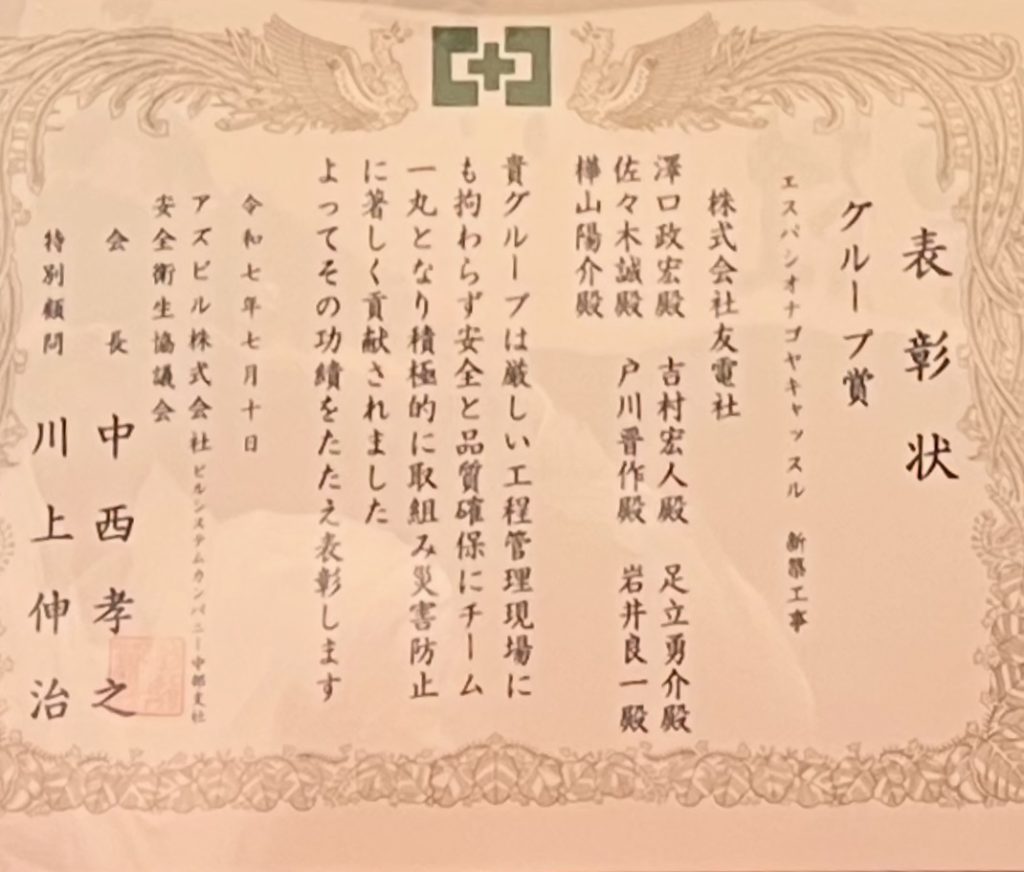 表彰状
グループ賞
エスパシオナゴヤキャッスル 新築工事
株式会社友電社
澤口政宏殿 吉村宏人殿 足立勇介殿
佐々木誠殿 戸川晋作殿 岩井良一殿
樺山陽介殿
貴グループは厳しい工程管理現場に
も拘わらず安全と品質確保にチーム
一丸となり積極的に取組み災害防止
に著しく貢献されました
よってその功績をたたえ表彰します
令和七年七月十日
アズビル株式会社 ビルシステムカンパニー中部支社
安全衛生協議会
会長 中西孝之
特別顧問 川上伸治